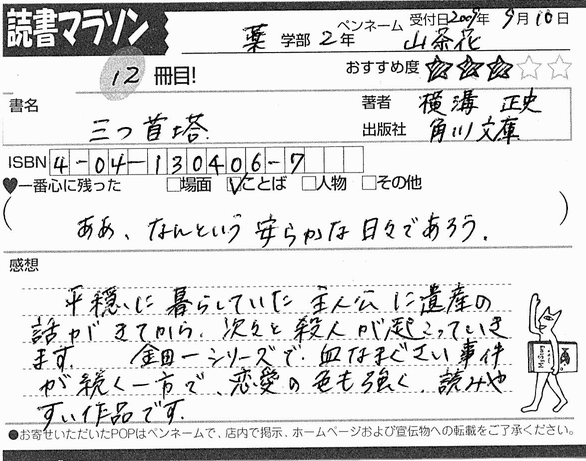 読書マラソン
ペンネーム 受付日2009年 9月10日
薬 学部 2年 山茶花
12 冊目!
おすすめ度 ★★★☆☆
書名
三つ首塔
著者 横溝 正史
出版社 角川文庫
ISBN 4-04-130406-7
♥一番心に残った □場面 ☑ことば □人物 □その他
(ああ、なんという安らかな日々であろう。)
感想
平穏に暮らしていた主人公に遺産の
話がきてから、次々と殺人が起こっていき
ます。 金田一シリーズで、血なまぐさい事件
が続く一方で、恋愛の色も強く、読みや
すい作品です。
●お寄せいただいたPOPはペンネームで、店内で掲示、ホームページおよび宣伝物への転載をご了承ください。